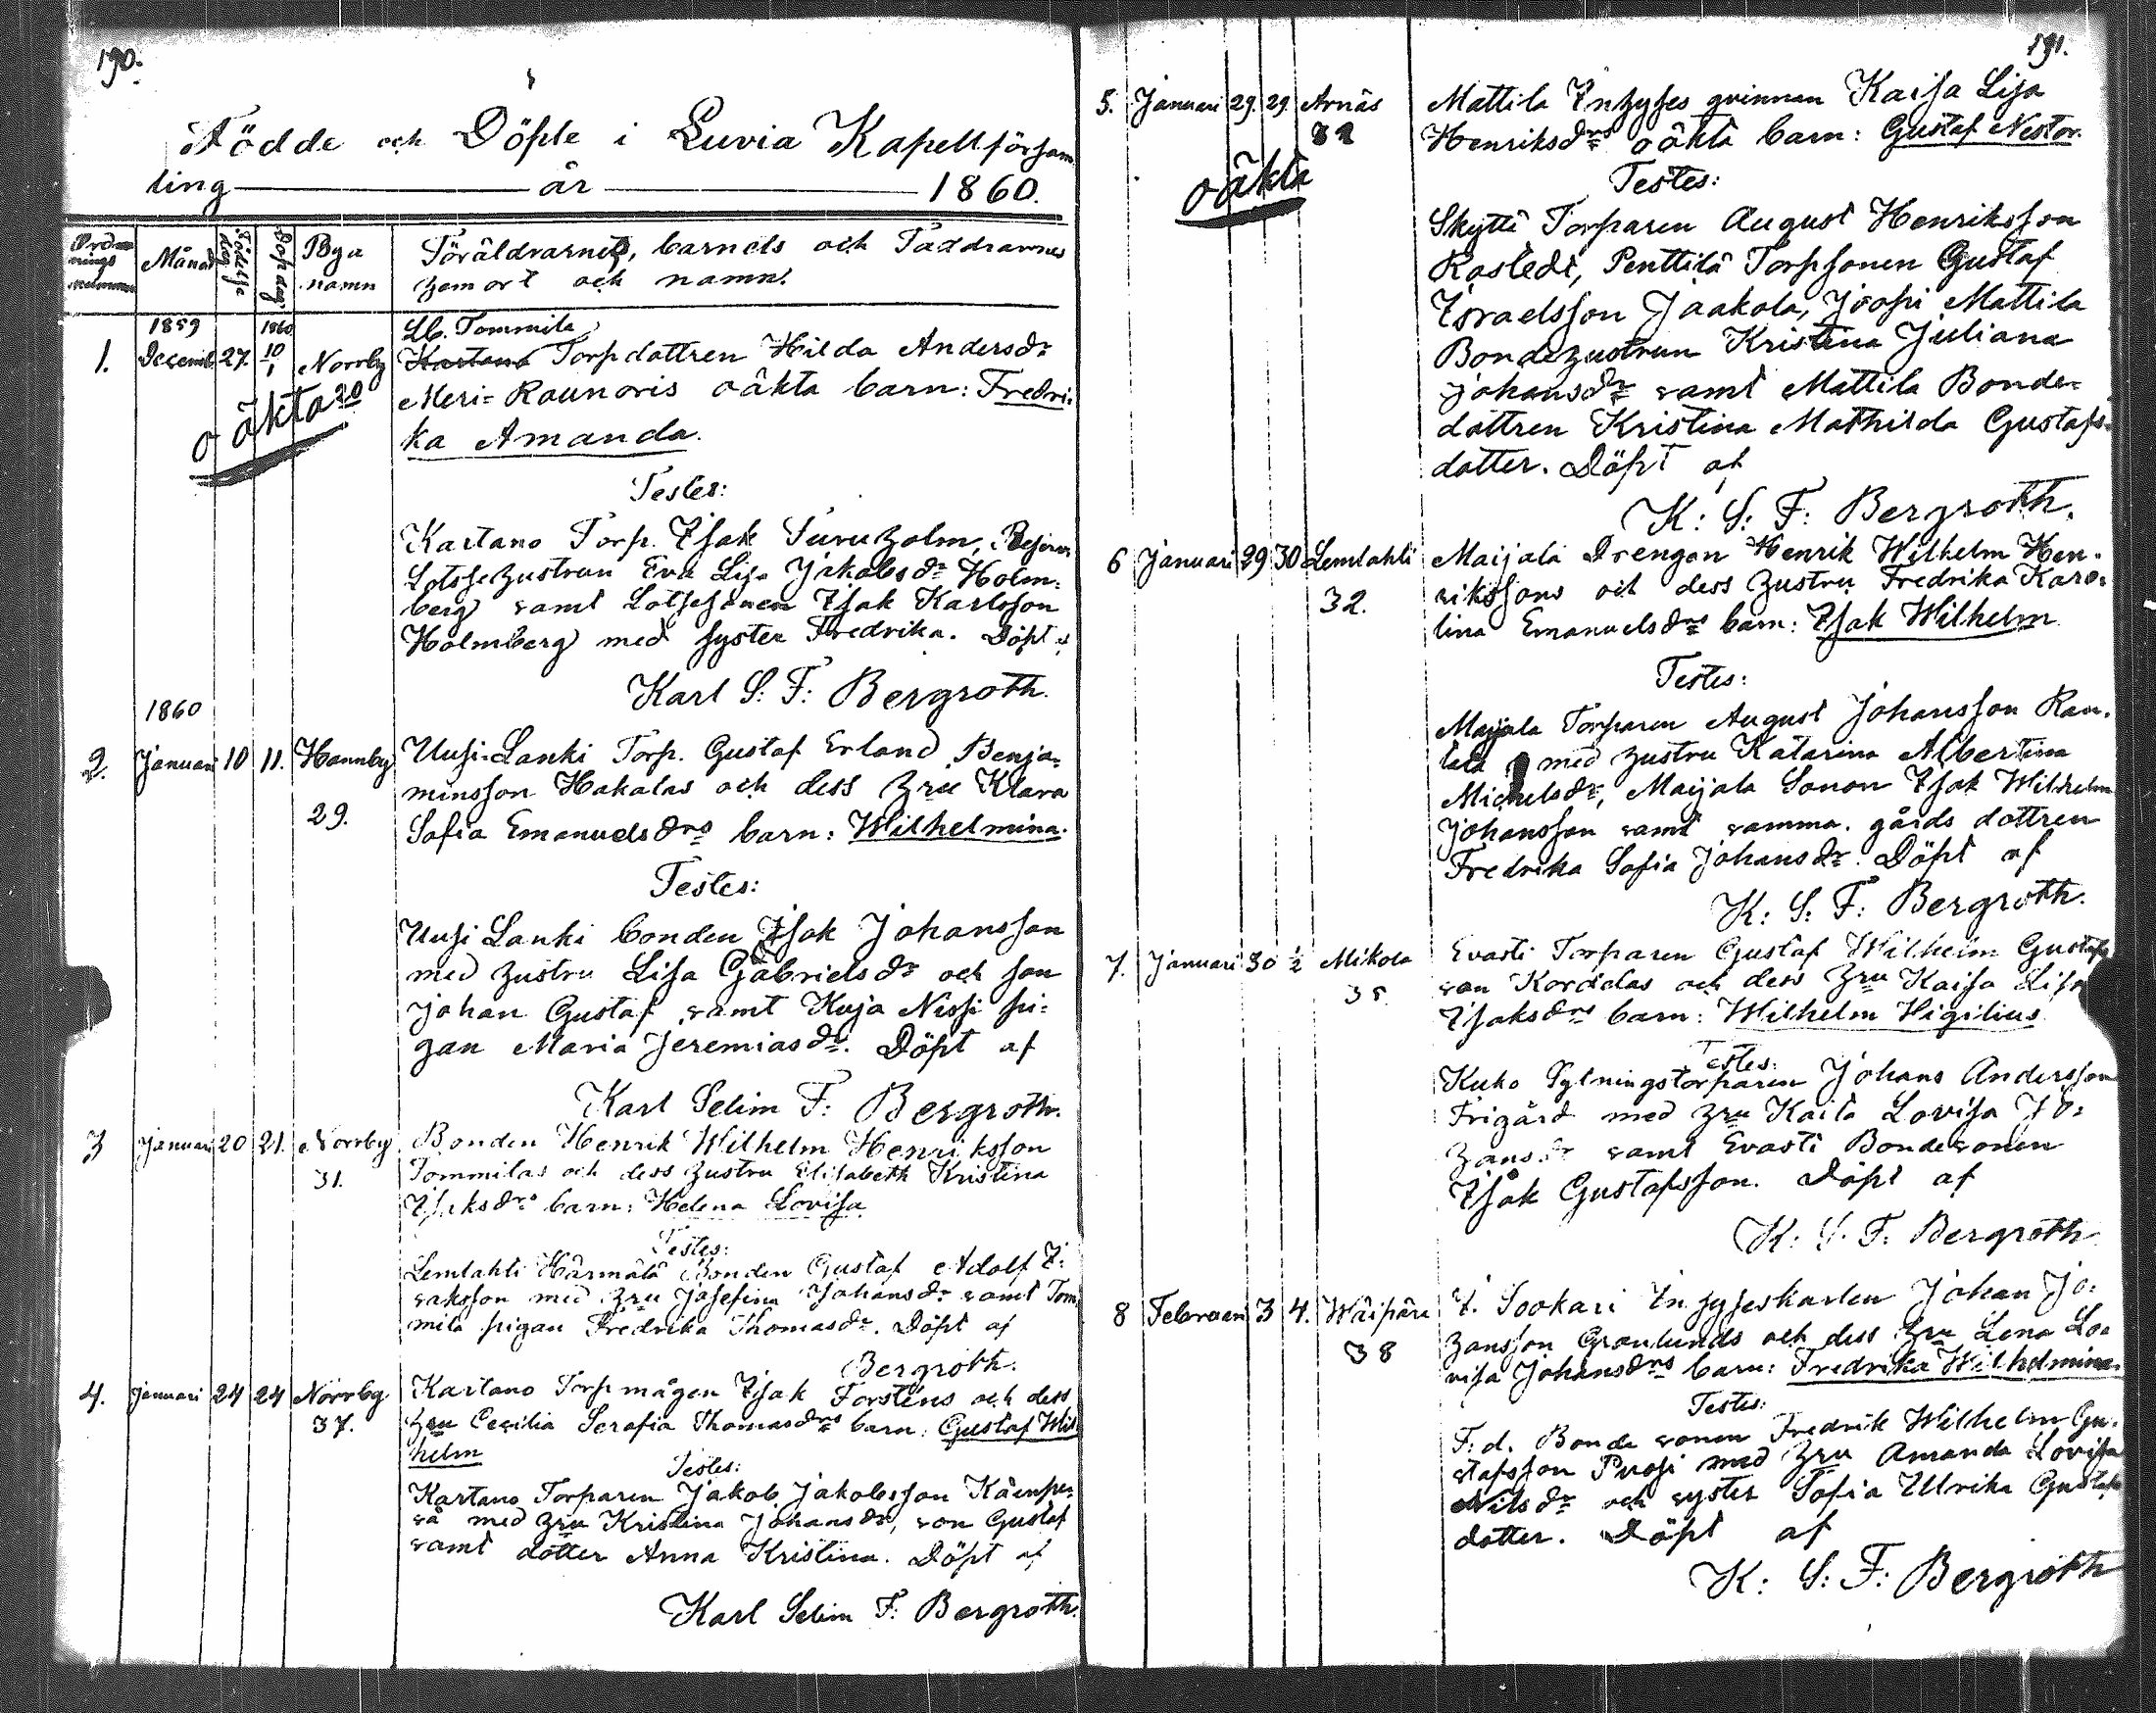 190.
Födde och Döpte i Luvia Kapellförsam
ling — år — 1860.
Ord
nings
Månad
Födelse
dag
Dopdag
Bya
namn
Föräldrarnes, barnets och Faddrarnes
hemort och namn.
1859
1860
Lb. Tommila
1. Decemb. 27. 10/1 Norrby Kartano Torpdottren Hilda Andersdr
20
Meri-Raunoris oäkta barn: Fredri-
oäkta
ka Amanda.
Testes:
Kartano Torp. Isak Suruholm,
Lotsehustrun Eva Lisa Jakobsdr Holm-
berg samt Lotsesonen Isak Karlsson
Holmberg med syster Fredrika. Döpt af
Karl S: F: Bergroth.
1860
2. Januari 10 11. Hannby Uusi-Lanki Torp. Gustaf Erland Benja-
minsson Hakalas och dess hru Klara
29.
Sofia Emanuelsdrs barn: Wilhelmina.
Testes:
Uusi Lanki bonden Isak Johansson
med hustru Lisa Gabrielsdr och son
Johan Gustaf samt Kuja Nissi pi-
gan Maria Jeremiasdr. Döpt af
Karl Selim F: Bergroth.
3 Januari 20 21. Norrby Bonden Henrik Wilhelm Henriksson
31.
Tommilas och dess hustru Elisabeth Kristina
Isaksdrs barn: Helena Lovisa
Testes:
Lemlahti Härmälä Bonden Gustaf Adolf I-
saksson med hru Josefina Johansdr samt Tom
mila pigan Fredrika Thomasdr. Döpt af
Bergroth.
4. Januari 24 24 Norrby Kartano Torpmågen Isak Forsténs och dess
37.
hru Cecilia Serafia Thomasdrs barn: Gustaf Wil
helm
Testes:
Kartano Torparen Jakob Jakobsson Käenpe-
sä med hru Kristina Johansdr, son Gustaf
samt dotter Anna Kristina. Döpt af
Karl Selim F: Bergroth.
191.
5. Januari 29. 29. Arnäs Mattila Inhyses qvinnan Kaisa Lisa
32
Henriksdrs oäkta barn: Gustaf Nestor.
oäkta
Testes:
Skyttä Torparen August Henriksson
Rostedt, Penttilä Torpsonen Gustaf
Israelsson Jaakola, Joopi Mattila
Bondehustrun Kristina Juliana
Johansdr samt Mattila Bonde-
dottren Kristina Mathilda Gustafs-
dotter. Döpt af
K: S: F: Bergroth.
6 Januari 29 30 Lemlahti Maijala Drengen Henrik Wilhelm Hen-
32.
rikssons och dess hustru Fredrika Karo-
lina Emanuelsdrs barn: Isak Wilhelm
Testes:
Maijala Torparen August Johansson Ran-
tala med hustru Katarina Albertina
Michelsdr, Maijala Sonen Isak Wilhelm
Johansson samt samma gårds dottren
Fredrika Sofia Johansdr. Döpt af
K: S: F: Bergroth.
7. Januari 30 1/2 Mikola Evasti Torparen Gustaf Wilhelm Gustafs
35.
son Kordelas och dess hru Kaisa Lisa
Isaksdrs barn: Wilhelm Higilius
Testes:
Kuko Sytningstorparen Johans Andersson
Frigård med hru Kaisa Lovisa Jo-
hansdr samt Evasti Bondesonen
Isak Gustafsson. Döpt af
K: S: F: Bergroth
8 Februari 3 4. Wäipäre Y. Sookari Inhyseskarlen Johan Jo-
38
hansson Granlunds och dess hru Lena Lo-
visa Johansdrs barn: Fredrika Wilhelmina.
Testes:
F:d. Bonde sonen Fredrik Wilhelm Gu-
stafsson Puosi med hru Amanda Lovisa
Nilsdr och syster Sofia Ulrika Gustafs
dotter. Döpt af
K: S: F: Bergroth